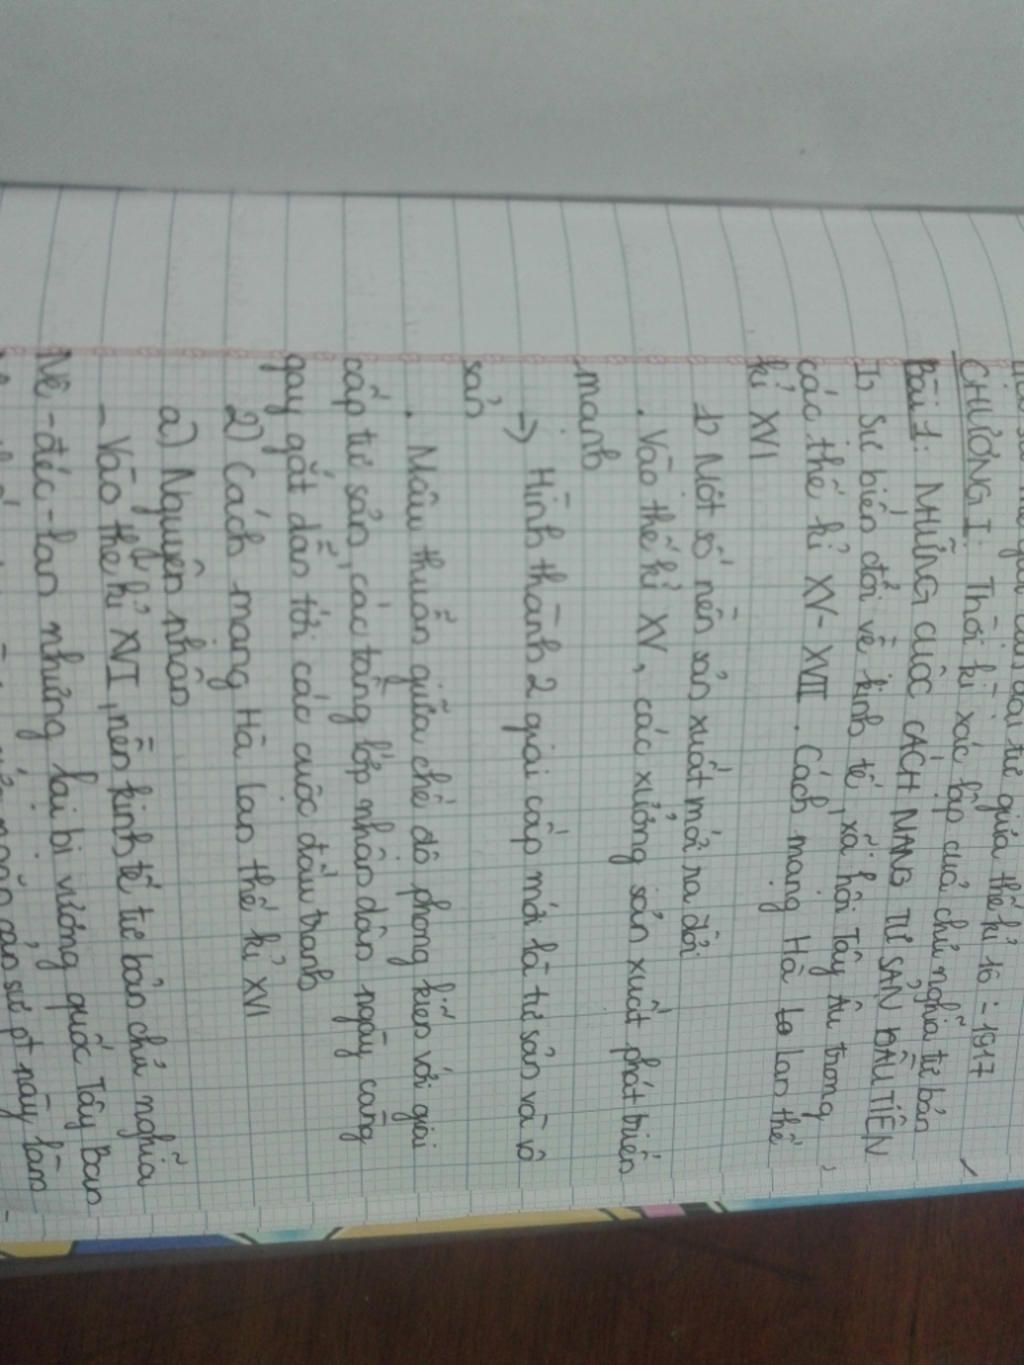 đại từ giữa thế kỉ 16 - 1917
CHƯƠNG I: Thời kì xác lập của chủ nghĩa tư bản
Bài 1: NHỮNG CUỘC CÁCH MẠNG TƯ SẢN ĐẦU TIÊN
I, Sự biến đổi về kinh tế, xã hội Tây Âu trong
các thế kỉ XV - XVII. Cách mạng Hà Lan thế
kỉ XVI
1) Một số nền sản xuất mới ra đời
. Vào thế kỉ XV, các xưởng sản xuất phát triển
mạnh
-> Hình thành 2 giai cấp mới là tư sản và vô
sản
. Mâu thuẫn giữa chế độ phong kiến với giai
cấp tư sản, các tầng lớp nhân dân ngày càng
gay gắt dẫn tới các cuộc đấu tranh
2) Cách mạng Hà Lan thế kỉ XVI
a) Nguyên nhân
- Vào thế kỉ XVI, nền kinh tế tư bản chủ nghĩa
Nê-đéc-lan nhưng lại bị vương quốc Tây Ban
ngăn cản sự pt này làm